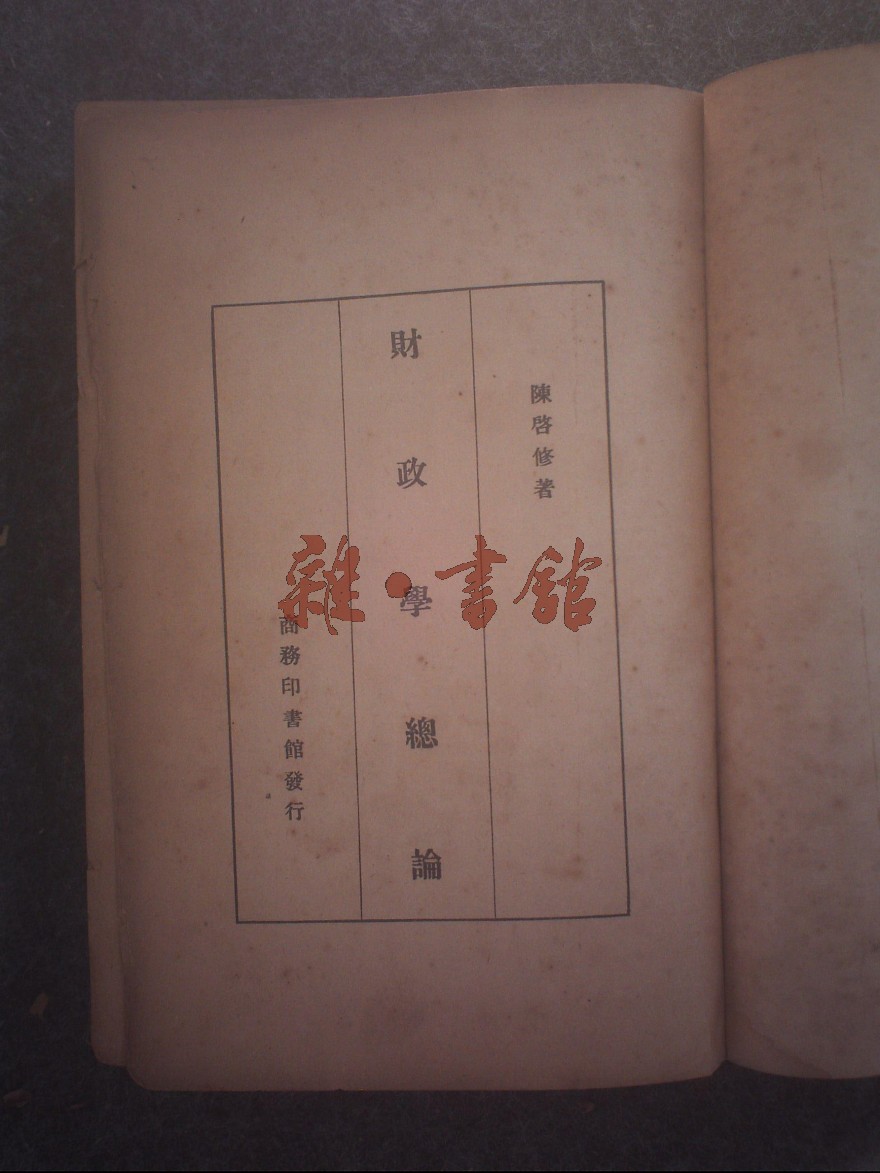 陳啓修著
財政學總論
商務印書館發行
雜·書館